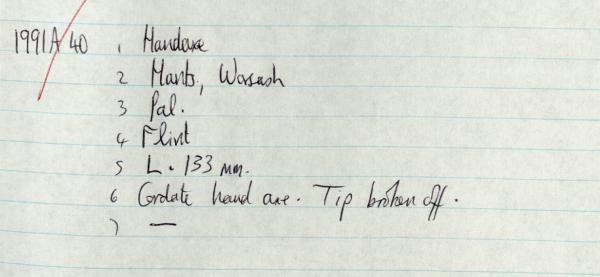 1991A 40 1 Handaxe
2 Hants, Warsash
3 Pal.
4 Flint
5 L. 133 mm.
6 Cordate hand axe. Tip broken off.
7 —